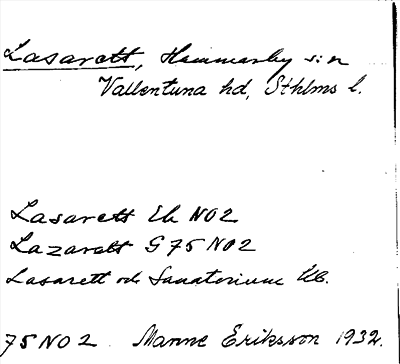 Lasarett, Hammarby sn
Vallentuna hd, Sthlms l.
Lasarett Ek NO2
Lazarett G 75 NO2
Lasarett och Sanatorium Ub.
75 NO2 Manne Eriksson 1932.